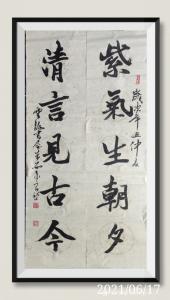 紫氣生朝夕
歲次辛丑仲夏
清言見古今
2021/06/17